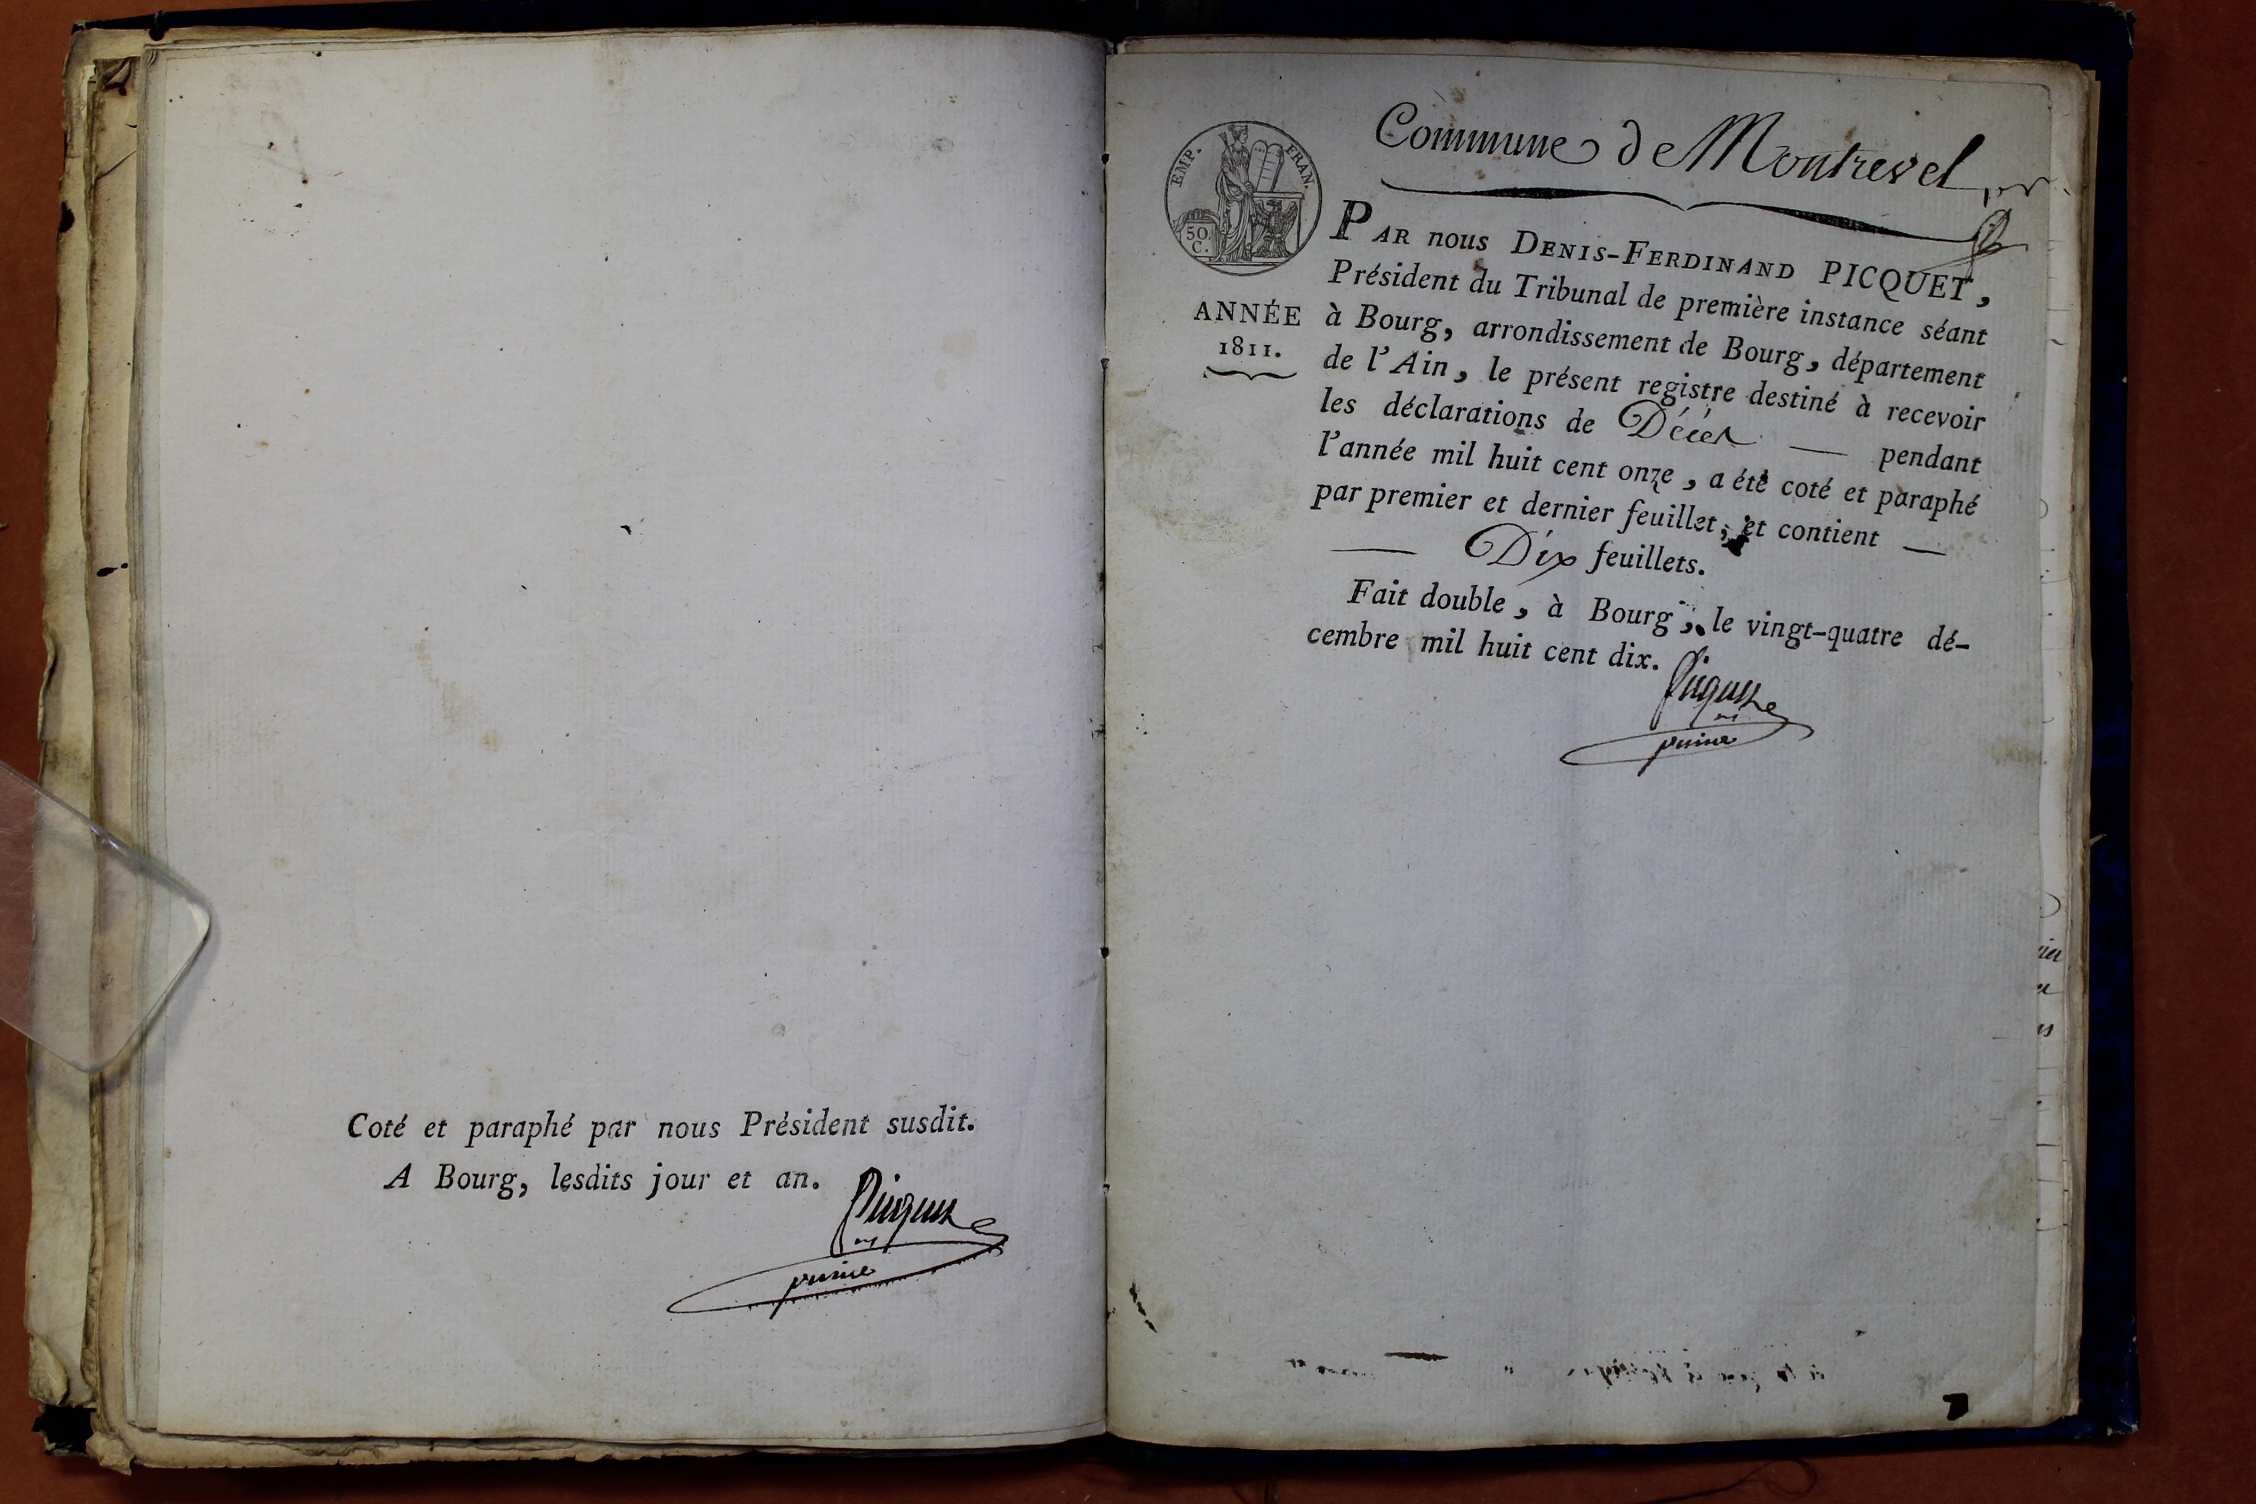 Coté et paraphé par nous Président susdit.
A Bourg, lesdits jour et an.
Picquet
Commune de Montrevel
EMP. FRAN.
50.
C.
ANNÉE
1811.
PAR nous DENIS-FERDINAND PICQUET,
Président du Tribunal de première instance séant
à Bourg, arrondissement de Bourg, département
de l'Ain, le présent registre destiné à recevoir
les déclarations de Décès — pendant
l'année mil huit cent onze, a été coté et paraphé
par premier et dernier feuillet, et contient —
— Dix feuillets.
Fait double, à Bourg, le vingt-quatre dé-
cembre mil huit cent dix.
Picquet